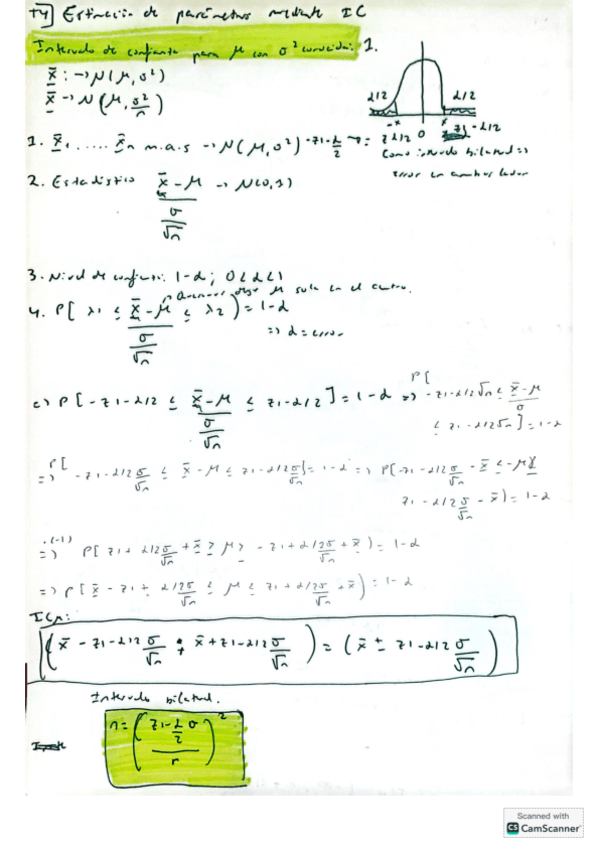 T4] Estimación de parámetros mediante IC
Intervalo de confianza para μ con σ² conocida: 1.
x̄ : → N(μ, σ²)
x̄ → N(μ, σ²/n)
α/2 α/2
-x 0 x
1. x̄₁ ..... x̄n m.a.s → N(μ, σ²)
Como intervalo bilateral =>
error en ambos lados
2. Estadístico (x̄ - μ)/(σ/√n) → N(0,1)
3. Nivel de confianza: 1-α ; 0<α<1
μ solo en el centro.
4. P[ λ1 ≤ (x̄ - μ)/(σ/√n) ≤ λ2 ) = 1-α
=> α = error
=> P[ -z1-α/2 ≤ (x̄ - μ)/(σ/√n) ≤ z1-α/2 ] = 1-α =>
P[ -z1-α/2 √n ≤ (x̄ - μ)/σ ≤ z1-α/2 √n ] = 1-α
=> P[ -z1-α/2 σ/√n ≤ x̄ - μ ≤ z1-α/2 σ/√n ] = 1-α => P[ -z1-α/2 σ/√n - x̄ ≤ -μ ≤
z1-α/2 σ/√n - x̄ ) = 1-α
·(-1)
=> P[ z1+α/2 σ/√n + x̄ ≥ μ ≥ -z1+α/2 σ/√n + x̄ ) = 1-α
=> P[ x̄ - z1+α/2 σ/√n ≤ μ ≤ z1+α/2 σ/√n + x̄ ) = 1-α
ICμ:
( x̄ - z1-α/2 σ/√n ; x̄ + z1-α/2 σ/√n ) = ( x̄ ± z1-α/2 σ/√n )
Intervalo bilateral.
n = ( (z1-α/2 σ)/r )²
Scanned with
CS CamScanner